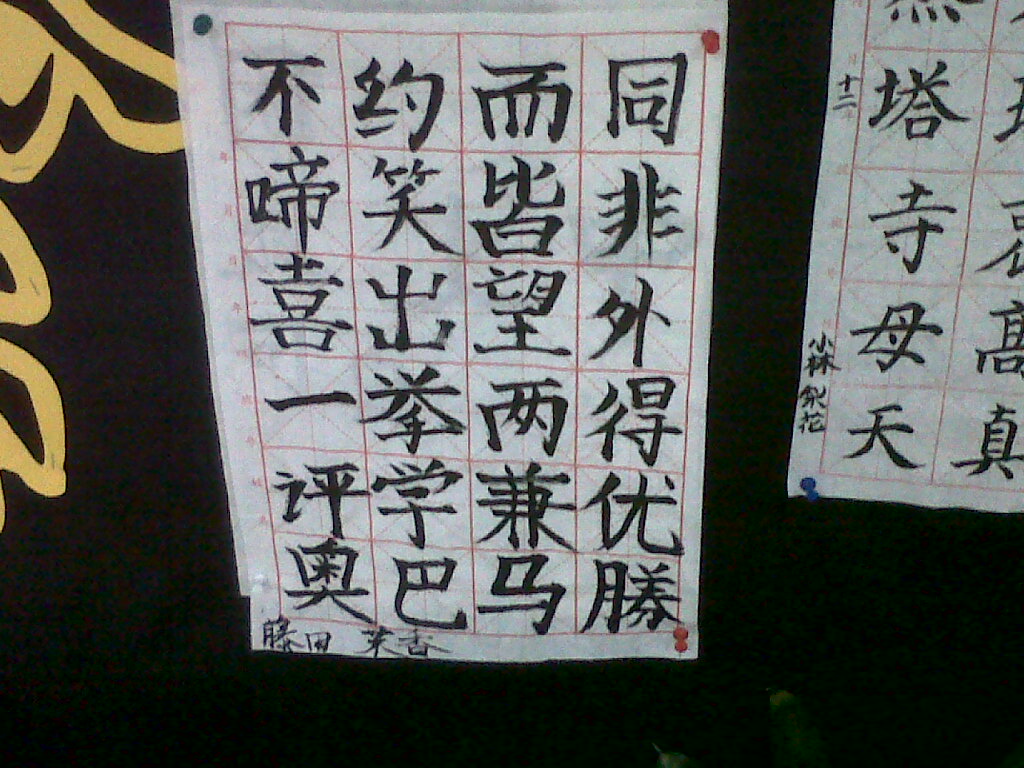 同非外得优勝
而皆望两兼马
约笑出拳学巴
不啼喜一评奥
藤田 茉香
塔寺母天
十二
小林 梨花
高真